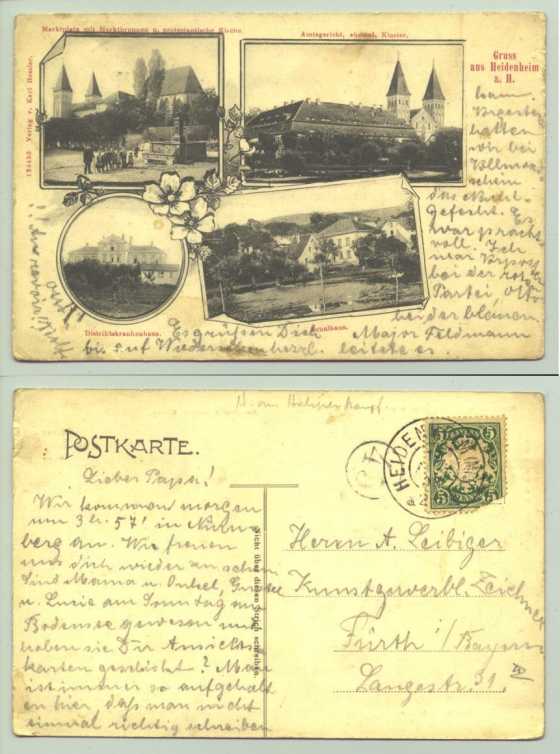 Marktplatz mit Marktbrunnen u. protestantische Kirche.
Amtsgericht, ehemal. Kloster.
Gruss
aus Heidenheim
a. H.
Verlag v. Karl
kann.
hatten
wir bei
das
Gefecht. Es
war pracht
voll. Ich
war
bei der roten
Partei, Otto
bei der blauen.
Major Feldmann
leitete es.
Distriktskrankenhaus.
Schulhaus.
Es grüßen Dich
bis auf Wiedersehen herzl.
POSTKARTE.
Lieber Papa!
Wir kommen morgen
um 3 h. 57! in Nürn
berg an. Wir freuen
uns dich wieder zu sehen.
Sind Mama u. Onkel, Grete
u. Lucie am Sonntag am
Bodensee gewesen und
haben sie Dir Ansichts
karten geschickt? Man
ist immer so aufgehalt
en hier, dass man nicht
einmal richtig schreiben
Nicht über diesen Strich schreiben.
HEIDENH
5 5
Herrn A. Leibiger
Kunstgewerbl. Zeichner
Fürth i/Bayern
Langestr. 31.